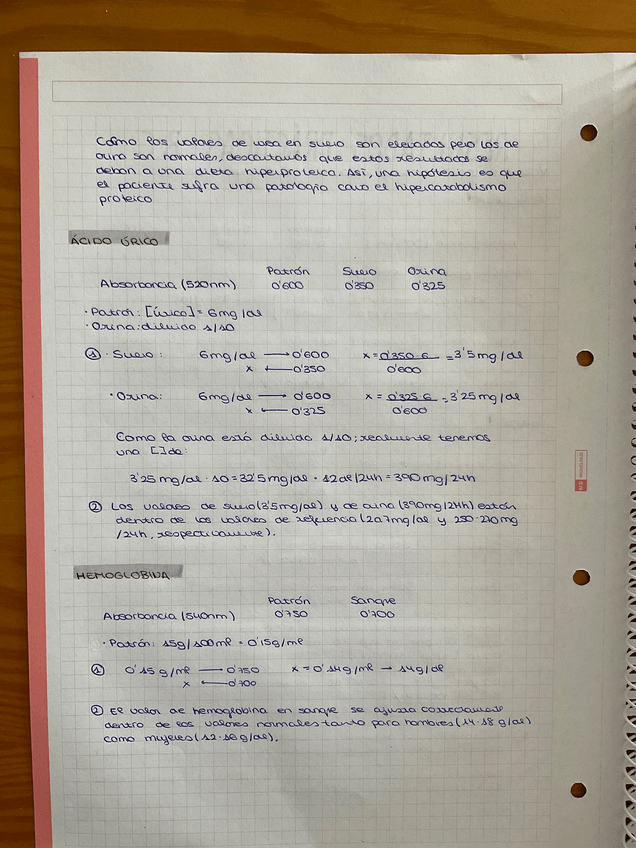 Como los valores de urea en suero son elevados pero los de
orina son normales, descartamos que estos resultados se
deban a una dieta hiperproteica. Así, una hipótesis es que
el paciente sufra una patología como el hipercatabolismo
proteico
ÁCIDO ÚRICO
Patrón Suero Orina
Absorbancia (520nm) 0'600 0'350 0'325
· Patrón: [úrico] = 6mg/dl
· Orina: diluido 1/10
① · Suero: 6mg/dl → 0'600 x = 0'350·6 = 3'5mg/dl
x ← 0'350 0'600
· Orina: 6mg/dl → 0'600 x = 0'325·6 = 3'25mg/dl
x ← 0'325 0'600
Como la orina está diluido 1/10; realmente tenemos
una [ ] de:
3'25mg/dl · 10 = 32'5mg/dl · 12dl/24h = 390mg/24h
② Los valores de suero (3'5mg/dl) y de orina (390mg/24h) están
dentro de los valores de referencia (2a7mg/dl y mg
/24h, respectivamente).
HEMOGLOBINA
Patrón Sangre
Absorbancia (540nm) 0'750 0'700
· Patrón: 15g/100ml = 0'15g/ml
① 0'15g/ml — 0'750 x = 0'14g/ml → 14g/dl
x ← 0'700
② El valor de hemoglobina en sangre se ajusta correctamente
dentro de los valores normales tanto para hombres (14-18 g/dl)
como mujeres (12-16 g/dl).